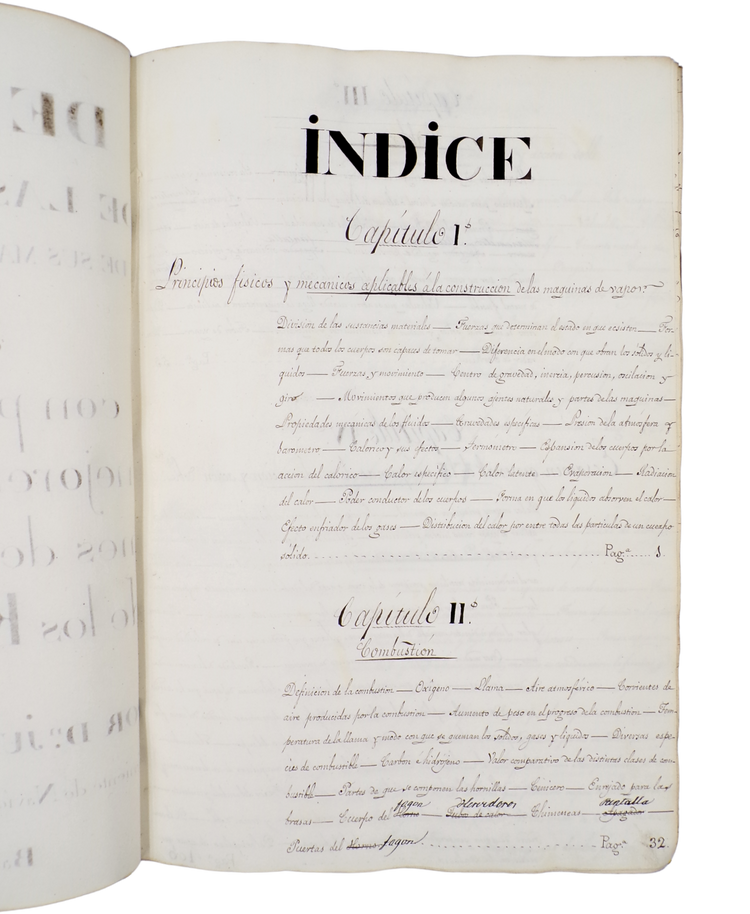 ÍNDICE
Capítulo I.º
Principios fisicos y mecanicos aplicables á la construccion de las maquinas de vapor.
Division de las sustancias materiales — Fuerzas que determinan el estado en que ecsisten — For-
mas que todos los cuerpos son capaces de tomar — Diferencia en el modo con que obran los sólidos y lí-
quidos — Fuerzas y movimiento — Centro de gravedad, inercia, percusion, oscilacion y
giro — Movimientos que producen algunos agentes naturales y partes de las maquinas —
Propiedades mecanicas de los fluidos — Gravedades especificas — Presion de la atmosfera y
barometro — Calorico y sus efectos — Termómetro — Espansion de los cuerpos por la
accion del calórico — Calor especifico — Calor latente — Evaporacion — Radiacion
del calor — Poder conductor de los cuerpos — Forma en que los líquidos absorven el calor —
Efecto enfriador de los gases — Distribucion del calor por entre todas las particulas de un cuerpo
sólido. Pag.ª 1
Capítulo II.º
Combustión
Definicion de la combustion — Oxígeno — Llama — Aire atmosférico — Corrientes de
aire producidas por la combustion — Aumento de peso en el progreso de la combustion — Tem-
peratura de la llama y modo con que se queman los solidos, gases y líquidos — Diversas espe-
cies de combustible — Carbon é hidrógeno — Valor comparativo de las distintas clases de com-
bustible — Partes de que se componen las hornillas — Cenicero — Enrejado para las
fogon Hervidores Pantalla
brasas — Cuerpo del Horno — Tubos de calor — Chimeneas — Apagador
Puertas del Horno fogon. Pag.ª 32